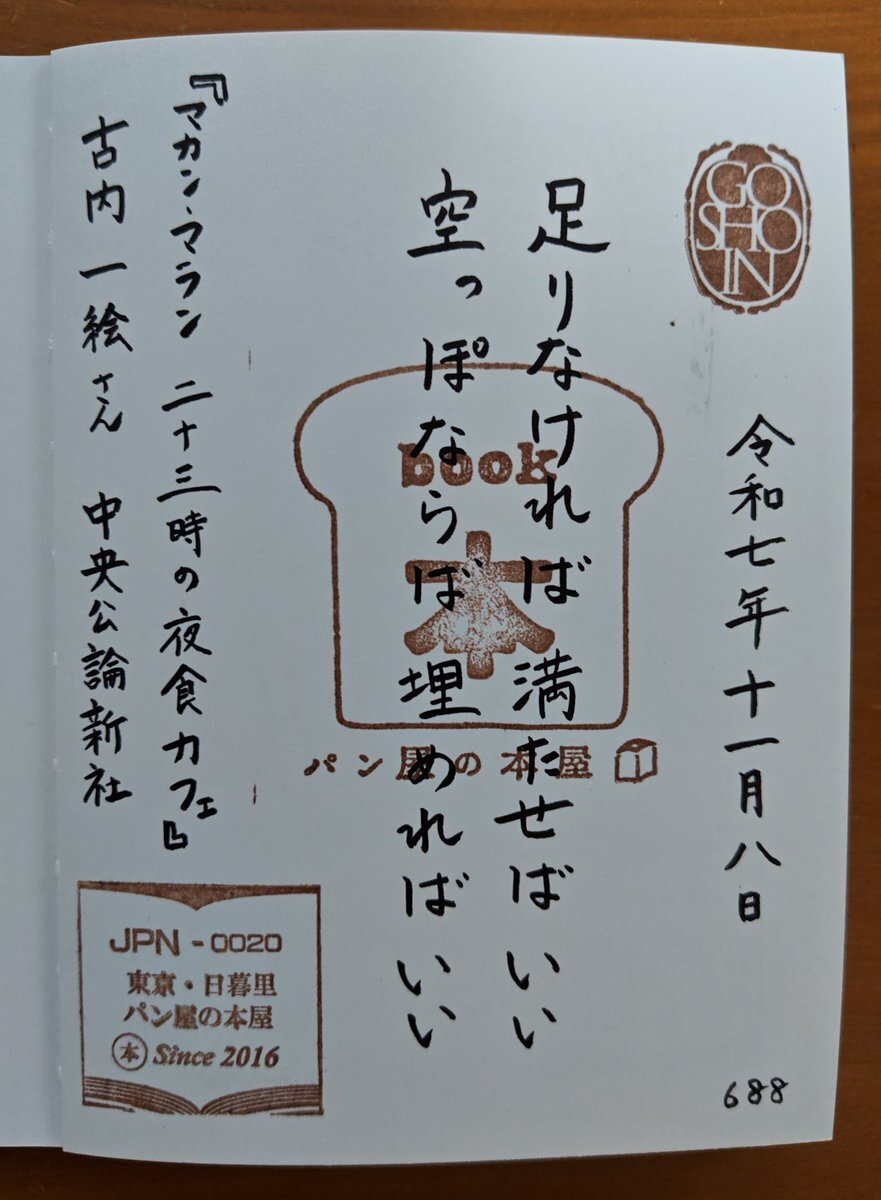 GO
SHO
IN
令和七年十一月八日
足りなければ 満たせば いい
空っぽならば 埋めれば いい
『マカン・マラン 二十三時の夜食カフェ』
古内一絵さん 中央公論新社
book
本
パン屋の本屋
JPN-0020
東京・日暮里
パン屋の本屋
本 Since 2016
688